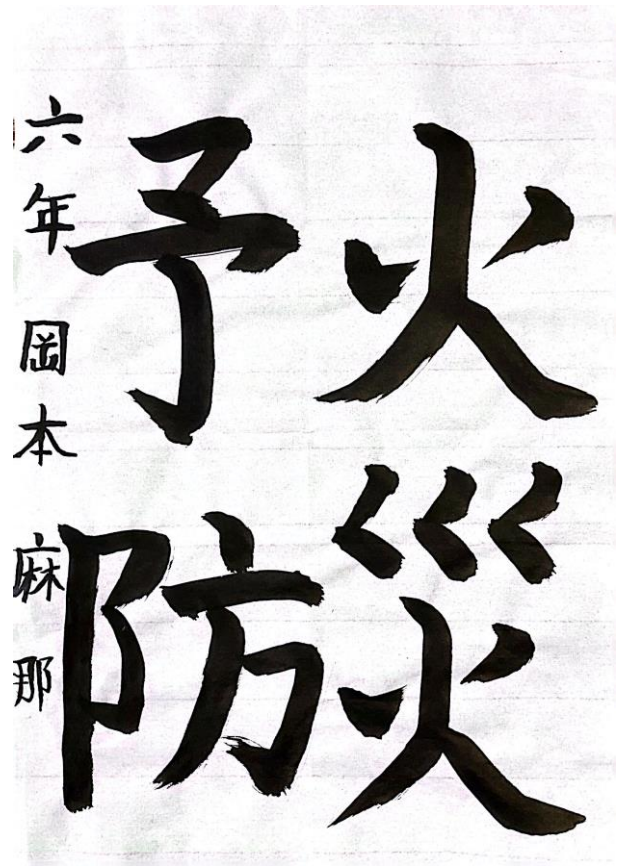 火災
予防
六年 岡本 麻那